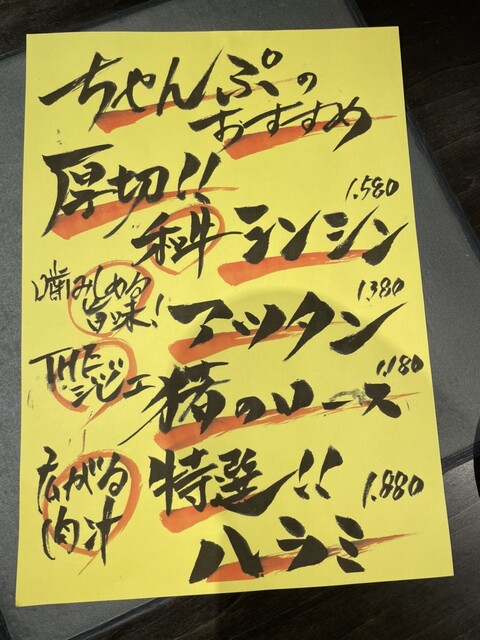 ちゃんぷの
おすすめ
厚切!!
1.580
和牛ランシン
噛みしめる
旨味!
1.380
アツタン
THE
ジビエ
1.180
猪のロース
広がる
肉汁
特選!!
1.880
ハラミ